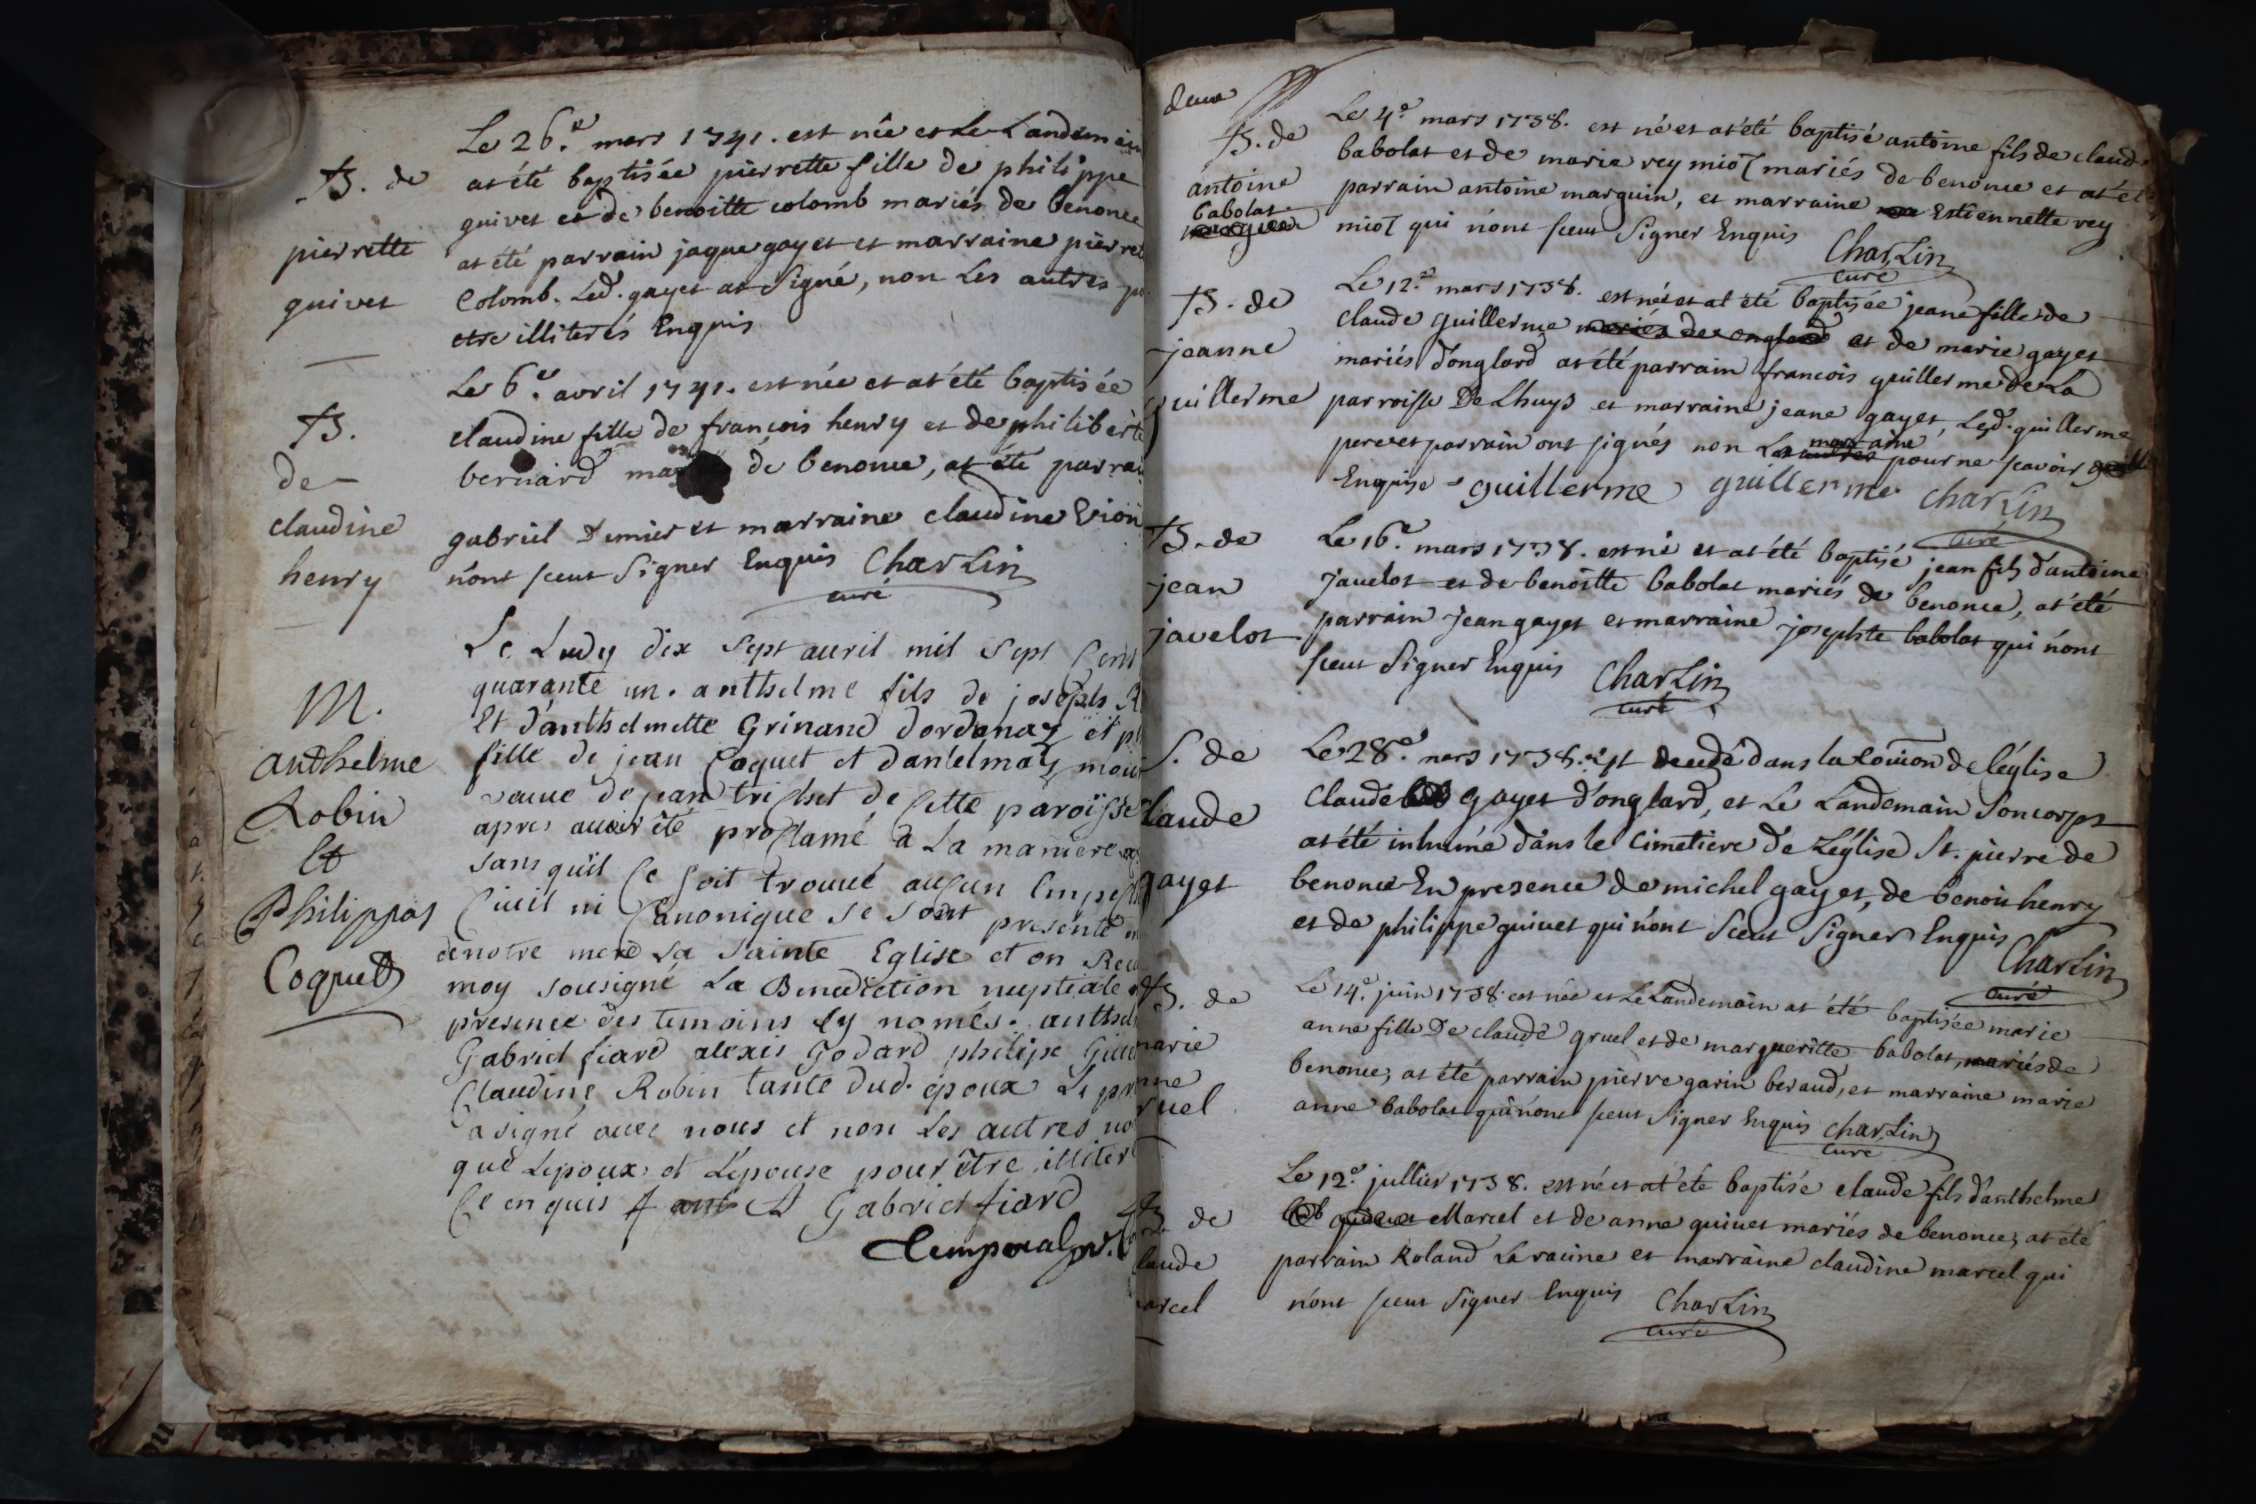 B. de
pierrette
guivet
Le 26.e mars 1741. est née et le Landemain
at été baptisée pierrette fille de philippe
guivet et de benoitte colomb mariés de benonce
at été parrain jaque gayet et marraine
Colomb. Led. gayet at signé, non Les autres
etre illiterés Enquis
B.
de
claudine
henry
Le 6.e avril 1741. est née et at été baptisée
claudine fille de françois henry et de philiberte
bernard de benonce, at été
gabriel et marraine claudine
n'ont sceut signer Enquis Charlin
curé
M.
anthelme
Robin
Et
Philippas
Coquet
Le Lundy dix sept avril mil sept Cent
quarante un. anthelme fils de joseph
Et d'anthelmette Grinand d'ordonaz et
fille de jean Coquet et
veuve de jean trichet de Cette paroisse
apres avoir été proclamé a La maniere
sans quil Ce soit trouvé aucun
Civil ni Canonique se sont presenté
de notre mere La Sainte Eglise et on
moy sousigné La Benediction nuptiale
presence des temoins cy només.
Gabriel fiard alexis Godard philipe
Claudine Robin tante dud. epoux
a signé avec nous et non Les autres
que Lepoux et L'epouse pour être
Ce enquis Gabriel fiard
deux
B. de
antoine
babolat
Le 4.e mars 1738. est né et at été baptisé antoine fils de claude
babolat et de marie rey miol mariés de benonce et at été
parrain antoine marguin, et marraine Estiennette rey
miol qui n'ont sceut signer Enquis Charlin
curé
B. de
jeanne
guillerme
Le 12.e mars 1738. est née et at été baptisée jeane fille de
claude guillerme mariés de onglard et de marie gayet
mariés d'onglard at été parrain francois guillerme de La
parroisse De Lhuys et marraine jeane gayet, Lesd. guillerme
pere et parrain ont signés non La marraine pour ne scavoir
Enquise guillerme guillerme Charlin
curé
B. de
jean
javelot
Le 16.e mars 1738. est né et at été baptisé jean fils d'antoine
javelot et de benoitte babolat mariés de benonce, at été
parrain Jean gayet et marraine josephte babolat qui n'ont
sceut signer Enquis Charlin
curé
S. de
laude
gayet
Le 28.e mars 1738. est decedé dans la de l'église
claude gayet d'onglard, et Le Landemain son corps
at été inhumé dans le Cimetiere de L'église St. pierre de
benonce En presence de michel gayet, de benoit henry
et de philippe guivet qui n'ont Sceut signer Enquis
Charlin
curé
B. de
marie
nne
ruel
Le 14.e juin 1738. est née et Le Landemain at été baptisée marie
anne fille De claude gruel et de margueritte babolat, mariés de
benonce, at été parrain pierre garin beraud, et marraine marie
anne babolat qui n'ont sceut signer Enquis Charlin
curé
B. de
laude
arcel
Le 12.e jullier 1738. est né et at été baptisé claude fils d'anthelme
Marcel et de anne guivet mariés de benonce, at été
parrain Roland La racine et marraine claudine marcel qui
n'ont sceut signer Enquis Charlin
curé